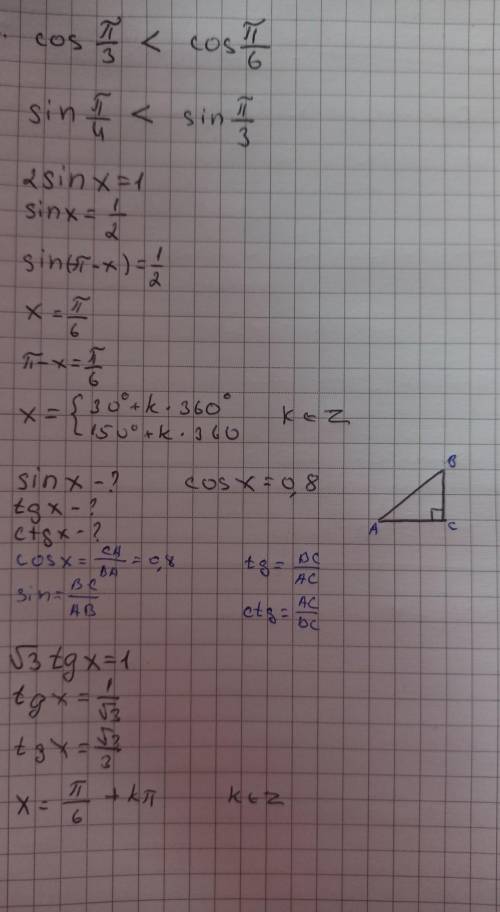 cos π/3 < cos π/6
sin π/4 < sin π/3
2sin x=1
sinx= 1/2
sin(π-x)= 1/2
x= π/6
π-x= π/6
x= { 30°+k·360°
150°+k·360 k∈Z
sin x-? cosx=0,8
tg x-?
ctgx-?
B
A
C
cosx= CA/BA =0,8 tg= BC/AC
sin= BC/AB
ctg= AC/BC
√3 tg x=1
tg x= 1/√3
tg x= √3/3
x= π/6 +kπ k∈Z